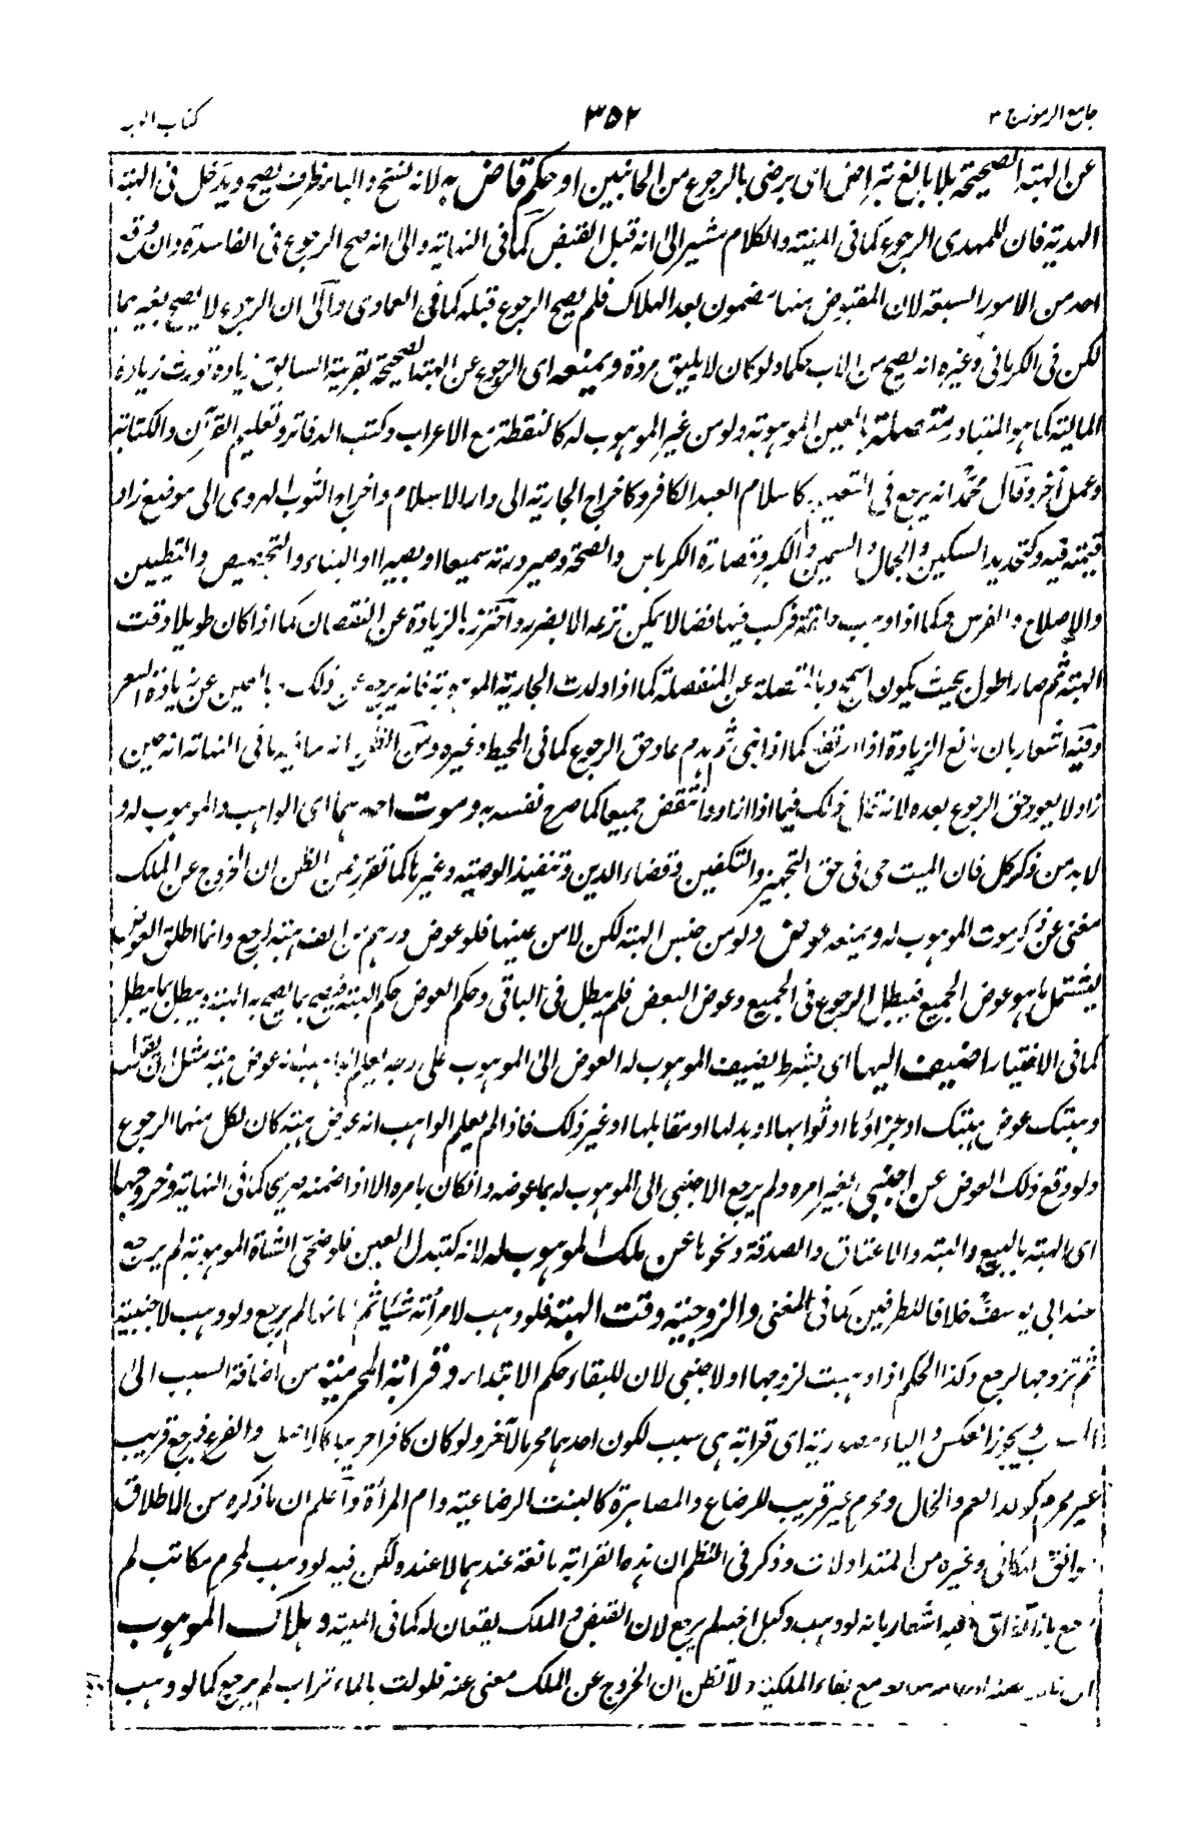 جامع الرموز ج ٣
٣٥٢
كتاب الهبه
عن الهبة الصحيحة بلا مانع بتراض اى برضى بالرجوع من الجانبين او حكم قاض به لانه فسخ والباء ظرف يصح ويدخل فى الهبة
الهدية فان للمهدى الرجوع كما فى المنية والكلام مشير الى انه قبل القبض كما فى النهاية والى انه صح الرجوع فى الفاسدة وان وقع
احد من الامور السبعة لان المقبوض منها مضمون بعد الهلاك فلم يصح الرجوع قبله كما فى العمادى والى ان الرجوع لا يصح بغيرهما
لكن فى الكرمانى وغيره انه يصح من الاب حكما ولو كان لا يليق مروة ويمنعه اى الرجوع عن الهبة الصحيحة بقرينة السابق زيادة تورث زيادة
المالية كما هو المتبادر متصلة بالعين الموهوبة ولو من غير الموهوب له كالنقطة مع الاعراب وكتب الدفاتر وتعليم القرآن والكتابة
وعمل آخر وقال محمد انه يرجع فى التعليم كاسلام العبد الكافر وكاخراج الجارية الى دار الاسلام واخراج الثوب الهروى الى موضع زاد
قيمته فيه وكتحديد السكين والجمال والسمن والكبر وقصارة الكرباس والصحة وصيرورته سميعا او بصيرا او البناء والتجصيص والتطيين
والاصلاح والفرس وكما اذا وهب فركب فيها فضا لا يمكن نزعه الا بضرر واحترز بالزيادة عن النقصان كما اذا كان طويلا وقت
الهبة ثم صار اطول بحيث يكون اسمج وبالمتصلة عن المنفصلة كما اذا ولدت الجارية الموهوبة فانه يرجع عن ذلك وبالعين عن زيادة السعر
وفيه اشعار بان مانع الزيادة اذا ارتفع كما اذا بنى ثم هدم عاد حق الرجوع كما فى المحيط وغيره ومن الظن انه مناف لما فى النهاية انه حين
زاد لا يعود حق الرجوع بعده لانه قال ذلك فيما اذا ازداد وانتقض جميعا كما صرح نفسه به وموت احدهما اى الواهب والموهوب له و
لا بد من ذكر كل فان الميت حى فى حق التجهيز والتكفين وقضاء الدين وتنفيذ الوصية وغيرها كما تقرر فمن الظن ان الخروج عن الملك
مغنى عن ذكر موت الموهوب له ويمنعه عوض ولو من جنس الهبة لكن لا من عينها فلو عوض درهم من الف هبته لرجع وانما اطلق العوض
ليشتمل ما هو عوض الجميع فيبطل الرجوع فى الجميع وعوض البعض فلم يبطل فى الباقى وحكم العوض حكم الهبة فيصح بما يصح به الهبة ويبطل بما يبطل
كما فى الاختيار اضيف اليها اى بشرط يضيف الموهوب له العوض الى الموهوب على وجه يعلم الواهب انه عوض هبته مثل ان يقول
وهبتك عوض هبتك او جزاؤها او ثوابها او بدلها او مقابلها او غير ذلك فاذا لم يعلم الواهب انه عوض هبته كان لكل منهما الرجوع
ولو وقع ذلك العوض عن اجنبى بغير امره ولم يرجع الاجنبى الى الموهوب له بما عوضه وان كان بامره الا اذا ضمنه صريحا كما فى النهاية وخروجها
اى الهبة بالبيع والهبة والاعتاق والصدقة ونحوها عن ملك الموهوب له لانه كتبدل العين فلو ضحى الشاة الموهوبة لم يرجع
عند ابى يوسف خلافا للطرفين كما فى المغنى والزوجية وقت الهبة فلو وهب لامرأته شيئا ثم ابانها لم يرجع ولو وهب لاجنبية
ثم تزوجها لرجع وكذا الحكم اذا وهبت لزوجها او لاجنبى لان للبقاء حكم الابتداء وقرابة المحرمية من اضافة السبب الى
ويجوز العكس والياء مصدرية اى قرابة هى سبب لكون احدهما محرما لآخر ولو كان كافرا حربيا كالاصل والفرع فرجع قريب
غير محرم كولد العم والخال ومحرم غير قريب للرضاع والمصاهرة كالبنت الرضاعية وام المرأة واعلم ان ما ذكره من الاطلاق
موافق للكافى وغيره من المتداولات وذكر فى النظم ان هذه القرابة مانعة عندهما لا عنده ولكن فيه لو وهب لمحرم مكاتب لم
فيه اشعار بانه لو وهب وكيل اخيه لم يرجع لان القبض والملك يقعان له كما فى المنية وهلاك الموهوب
مع بقاء الملكية ولا تظن ان الخروج عن الملك مغنى عنه فلو لت بالماء تراب لم يرجع كما لو وهب